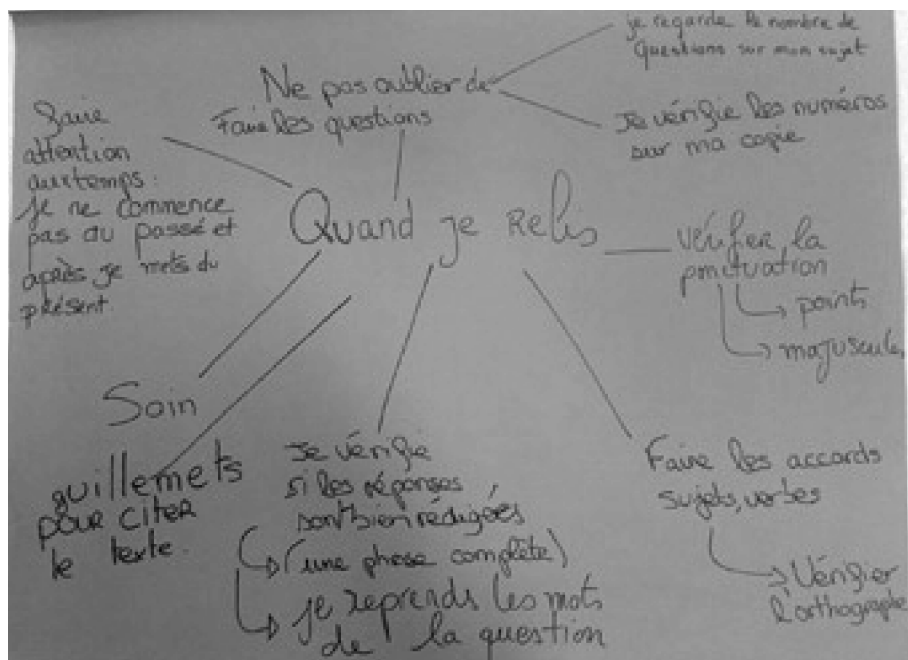 je regarde le nombre de
questions sur mon sujet
Ne pas oublier de
Faire les questions
Je vérifie les numéros
sur ma copie
Faire
attention
aux temps:
je ne commence
pas du passé et
après je mets du
présent.
Quand je Relis
vérifier la
ponctuation
points
majuscules
Soin
guillemets
pour citer
le texte.
Je vérifie
si les réponses
sont bien rédigées
(une phrase complète)
je reprends les mots
de la question
Faire les accords
sujets, verbes
Vérifier
l'orthographe